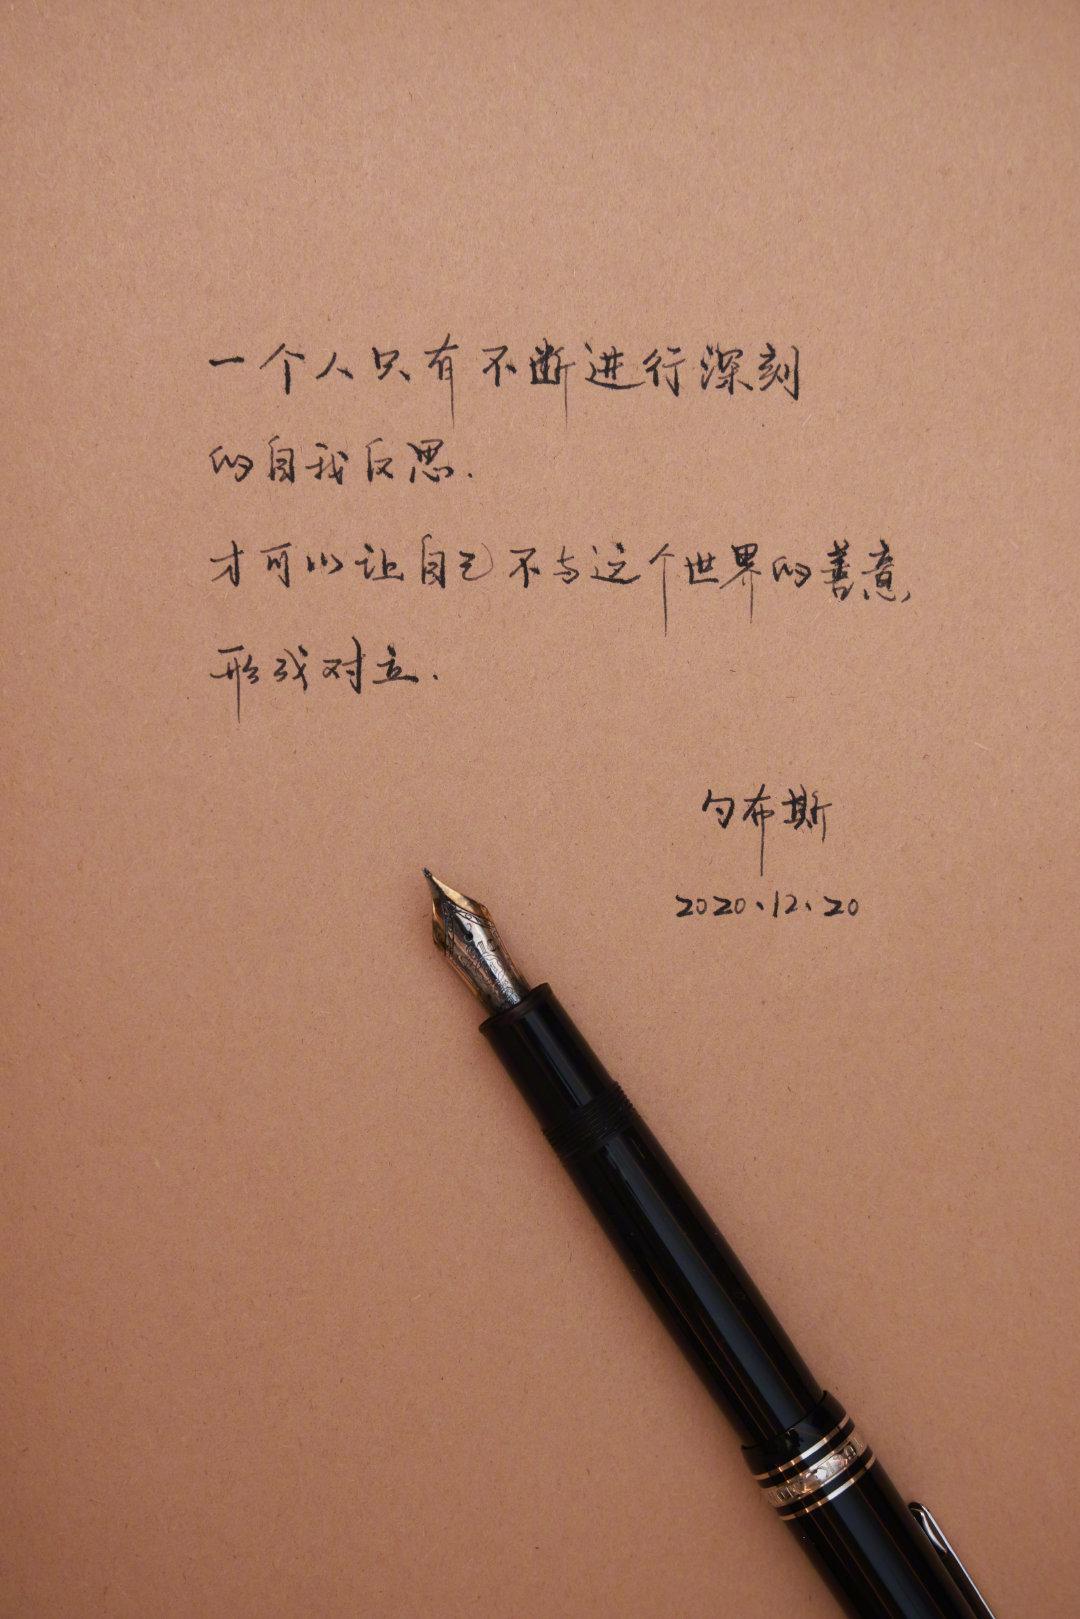 一个人只有不断进行深刻
的自我反思.
才可以让自己不与这个世界的善意
形成对立.
勺布斯
2020、12、20